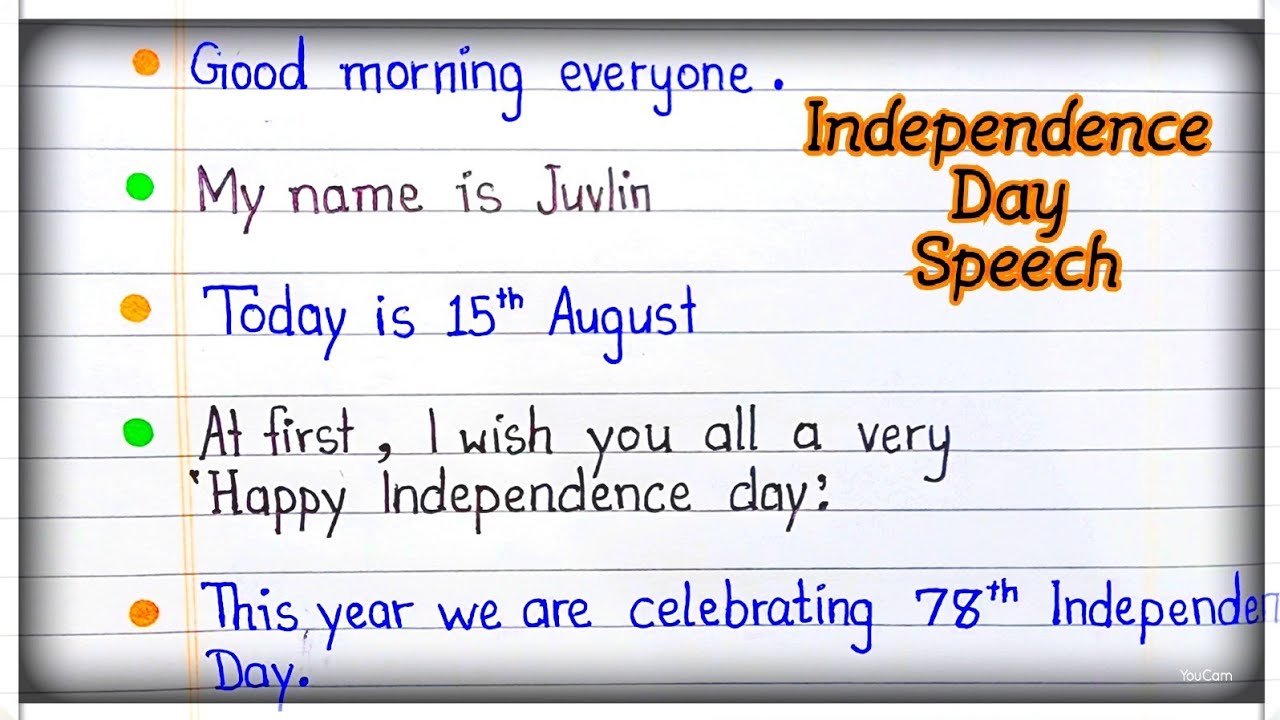 Good morning everyone.
Independence
Day
Speech
My name is Juvlin
Today is 15th August
At first, I wish you all a very
'Happy Independence day'.
This year we are celebrating 78th Independen
Day.
YouCam